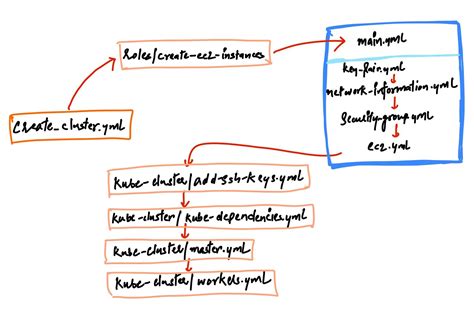 Roles/create-ec2-instances
main.yml
Key-Pair.yml
network-information.yml
Security-group.yml
ec2.yml
Create_cluster.yml
Kube-cluster/add-ssh-keys.yml
Kube-cluster/kube-dependencies.yml
Kube-cluster/master.yml
Kube-cluster/workers.yml